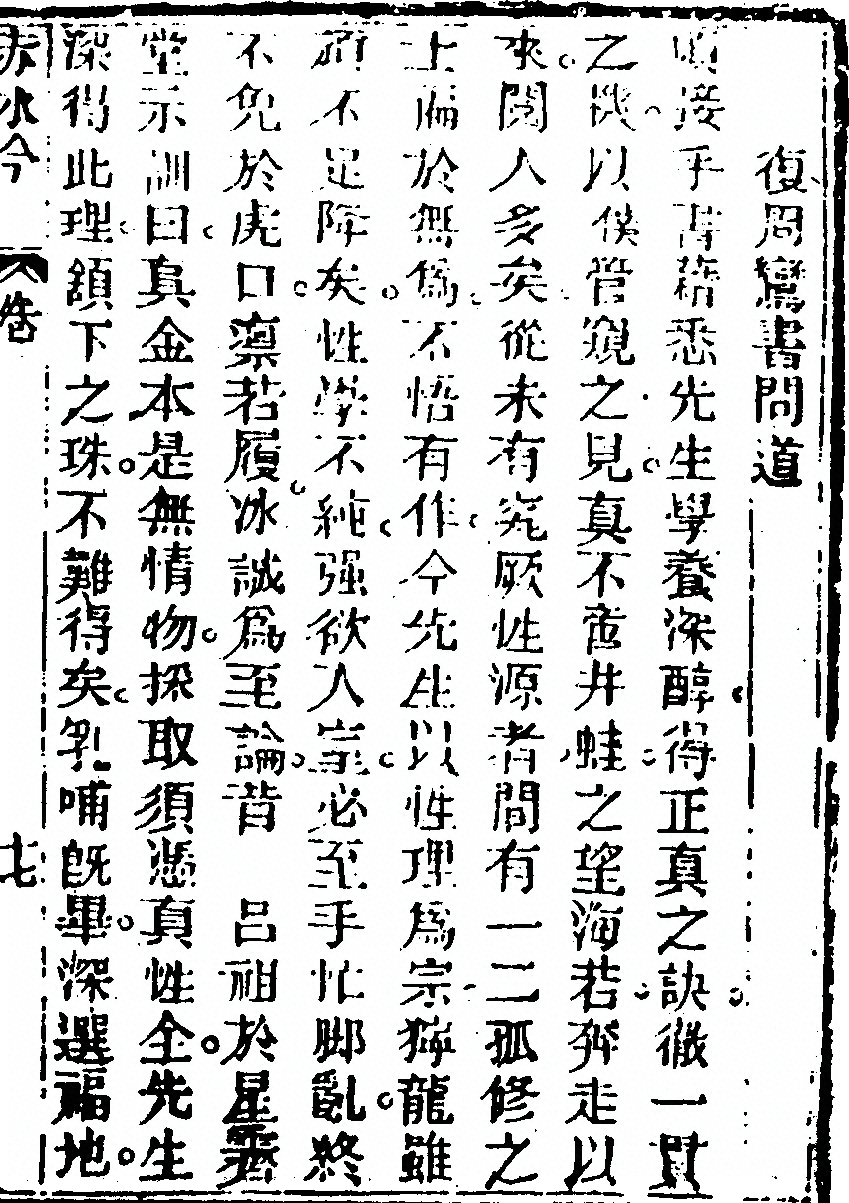 復周鸞書問道
頃接手書藉悉先生學養深醇得正真之訣徹一貫
之機以僕管窺之見真不啻井蛙之望海若奔走以
來閱人多矣從未有究厥性源者間有一二孤修之
士偏於無為不悟有作今先生以性理為宗獰龍雖
頑不足降矣性學不純强欲入室必至手忙脚亂終
不免於虎口凛若履冰誠為至論昔　呂祖於星霽
堂示訓曰真金本是無情物採取須憑真性全先生
深得此理頷下之珠不難得矣乳哺既畢深選福地
赤水吟
八
七